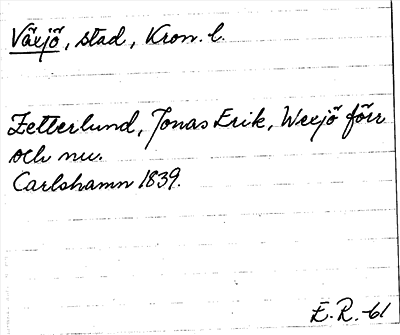 Växjö, stad, Kron. l.
Zetterlund, Jonas Erik, Wexjö förr
och nu.
Carlshamn 1839.
E. R. -61